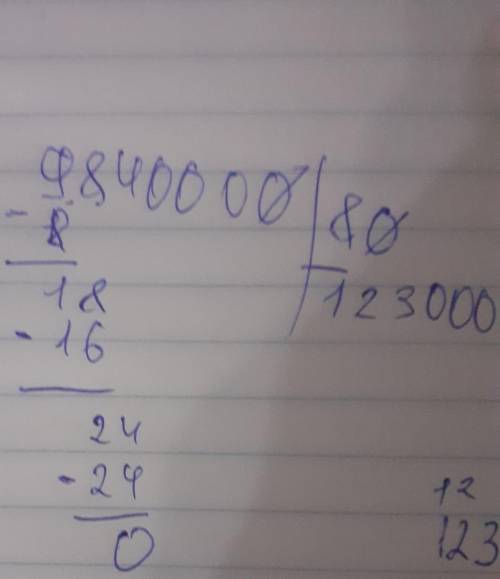 9840000 80
- 8
123000
18
- 16
24
- 24
0
12
123